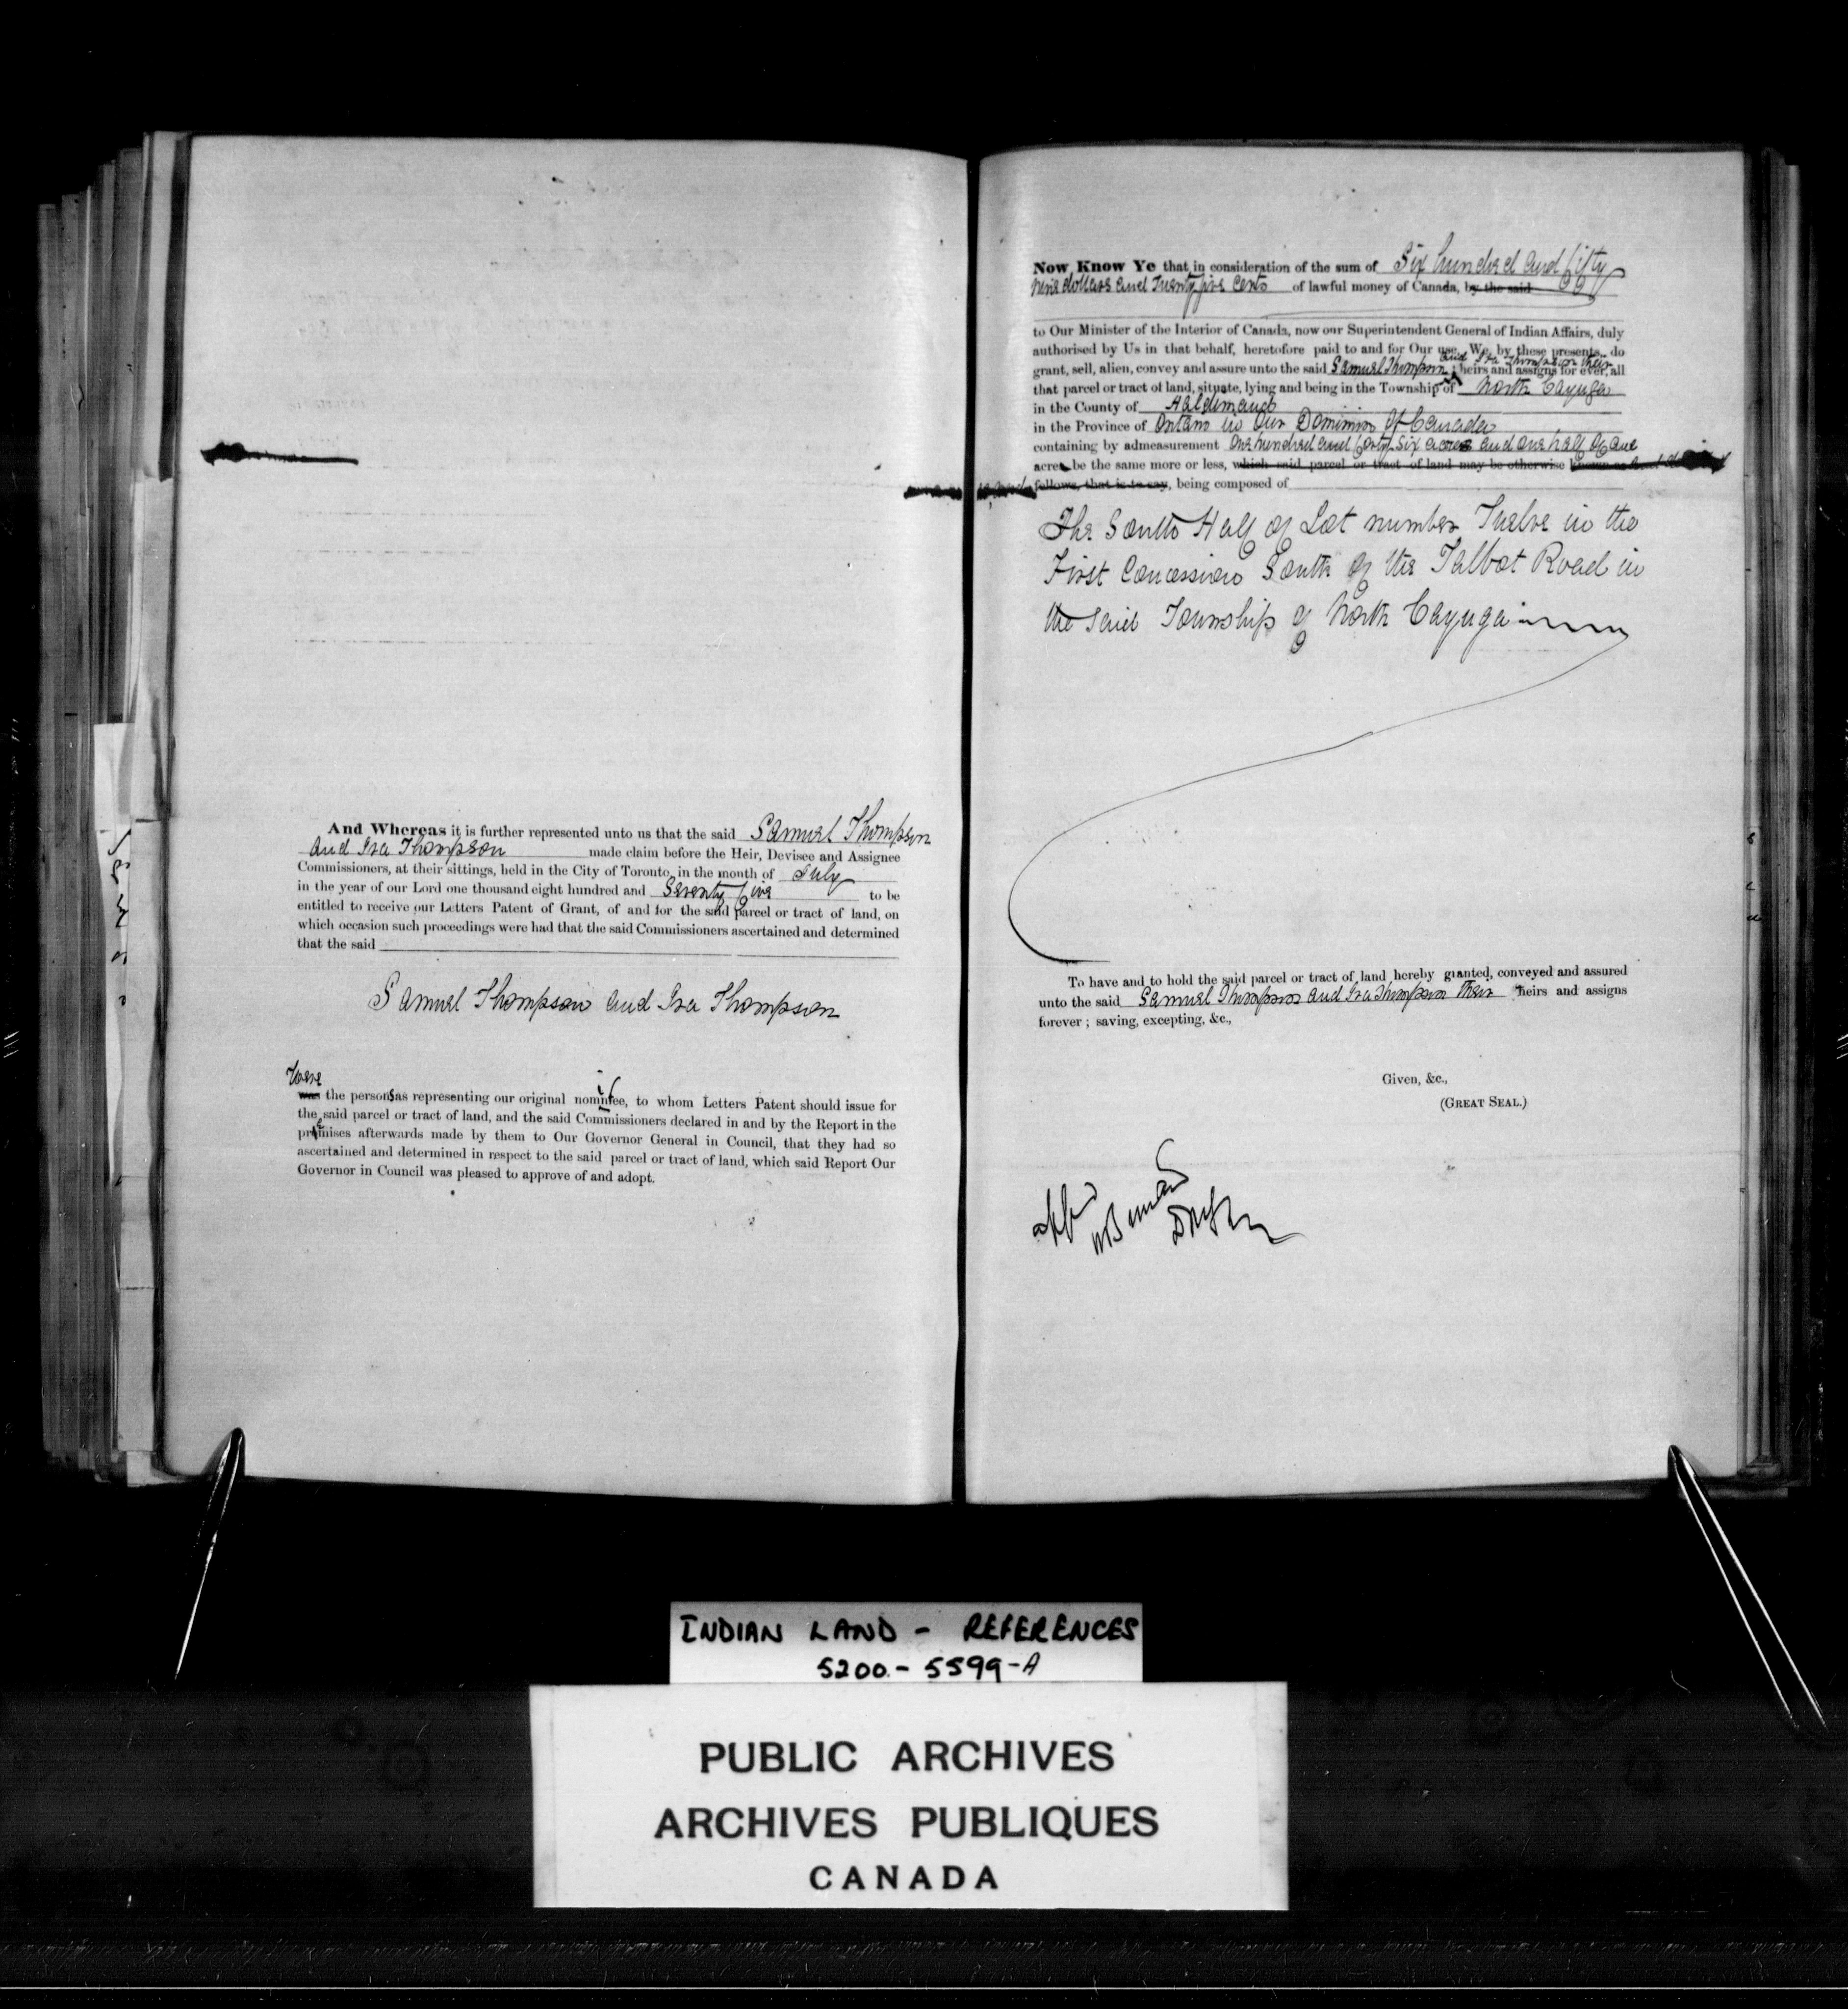 And Whereas it is further represented unto us that the said Samuel Thompson
and Ira Thompson made claim before the Heir, Devisee and Assignee
Commissioners, at their sittings, held in the City of Toronto, in the month of July
in the year of our Lord one thousand eight hundred and Seventy five to be
entitled to receive our Letters Patent of Grant, of and for the said parcel or tract of land, on
which occasion such proceedings were had that the said Commissioners ascertained and determined
that the said
Samuel Thompson and Ira Thompson
Were
was the persons as representing our original nominee, to whom Letters Patent should issue for
the said parcel or tract of land, and the said Commissioners declared in and by the Report in the
premises afterwards made by them to Our Governor General in Council, that they had so
ascertained and determined in respect to the said parcel or tract of land, which said Report Our
Governor in Council was pleased to approve of and adopt.
Now Know Ye that in consideration of the sum of Six hundred and fifty
nine dollars and Twenty five Cents of lawful money of Canada, by the said
to Our Minister of the Interior of Canada, now our Superintendent General of Indian Affairs, duly
authorised by Us in that behalf, heretofore paid to and for Our use, We, by these presents, do
and Ira Thompson their
grant, sell, alien, convey and assure unto the said Samuel Thompson heirs and assigns for ever, all
that parcel or tract of land, situate, lying and being in the Township of North Cayuga
in the County of Haldimand
in the Province of Ontario in Our Dominion Of Canada
containing by admeasurement One hundred and forty Six acres and One half of one
acre be the same more or less, which said parcel or tract of land may be otherwise known as
follows, that is to say, being composed of
The South Half of Lot number Twelve in the
First Concession South of the Talbot Road in
the said Township of North Cayuga
To have and to hold the said parcel or tract of land hereby granted, conveyed and assured
unto the said Samuel Thompson and Ira Thompson their heirs and assigns
forever; saving, excepting, &c.,
Given, &c.,
(GREAT SEAL.)
INDIAN LAND - REFERENCES
5200 - 5599-A
PUBLIC ARCHIVES
ARCHIVES PUBLIQUES
CANADA